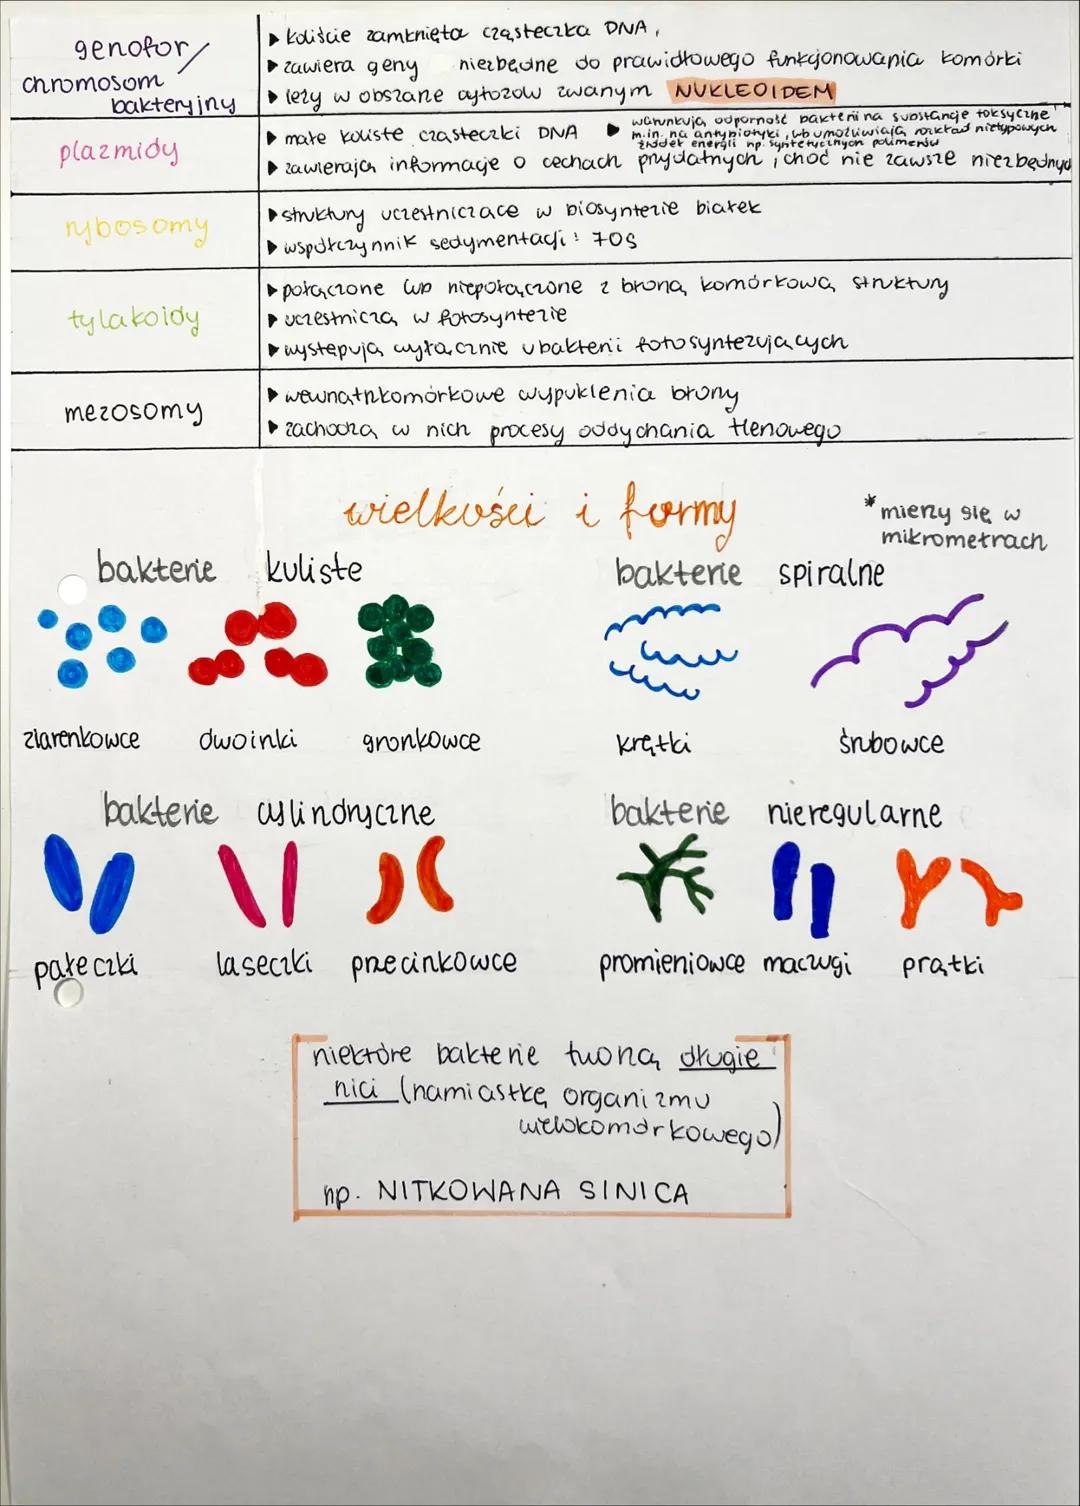 genofor/
chromosom
bakteryjny
▸ koliście zamknięta cząsteczka DNA,
▸ zawiera geny niezbędne do prawidłowego funkcjonowania komórki
▸ leży w obszarze cytozolu zwanym NUKLEOIDEM
plazmidy
▸ małe koliste cząsteczki DNA
▸ warunkują odporność bakterii na substancje toksyczne
m.in. na antybiotyki, lub umożliwiają rozkład nietypowych
źródeł energii np. syntetycznych polimerów
▸ zawierają informacje o cechach przydatnych, choć nie zawsze niezbędnyc
rybosomy
▸ struktury uczestniczące w biosyntezie białek
▸ współczynnik sedymentacji: 70S
tylakoidy
▸ połączone lub niepołączone z błoną komórkową struktury
▸ uczestniczą w fotosyntezie
▸ występują wyłącznie u bakterii fotosyntezujących
mezosomy
▸ wewnątrzkomórkowe wypuklenia błony
▸ zachodzą w nich procesy oddychania tlenowego
wielkości i formy
* mierzy się w
mikrometrach
bakterie kuliste
bakterie spiralne
ziarenkowce dwoinki gronkowce
krętki śrubowce
bakterie cylindryczne
bakterie nieregularne
pałeczki laseczki przecinkowce
promieniowce maczugi prątki
niektóre bakterie tworzą długie
nici (namiastkę organizmu
wielokomórkowego)
np. NITKOWANA SINICA